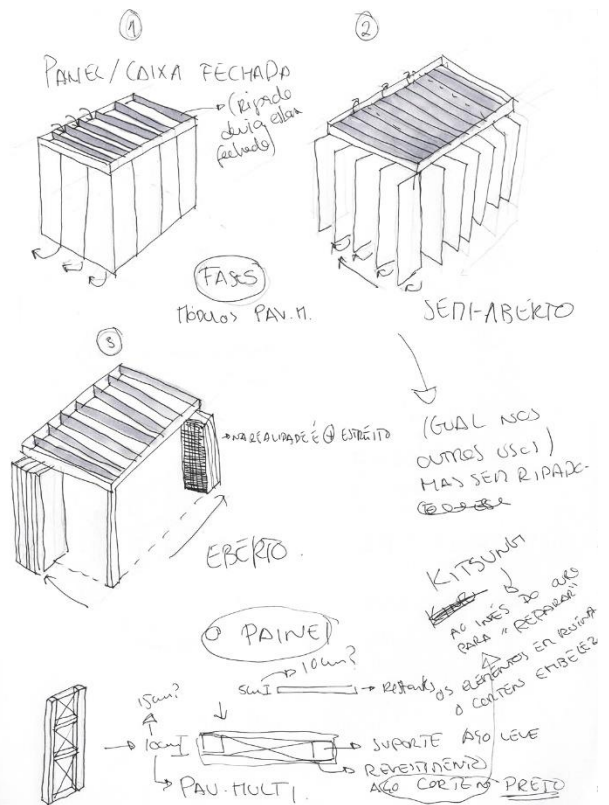 1
PANEL/CAIXA FECHADA
(ripado
devia estar
fechado)
2
SEMI-ABERTO
FASES
MÓDULOS PAV.M.
3
NA REALIDADE É + ESTREITO
EBERTO.
(IGUAL NOS
OUTROS USOS)
MAS SEM RIPADO.
KITSUNGI
AO INVÉS DO OURO
PARA "REPARAR"
OS ELEMENTOS EM RUÍNA
O CORTEN EMBELEZ
O PAINEL
10cm?
5cm
Restantes
15cm?
10cm
PAV. MULTI.
SUPORTE AÇO LEVE
REVESTIMENTO
AÇO CORTEN PRETO